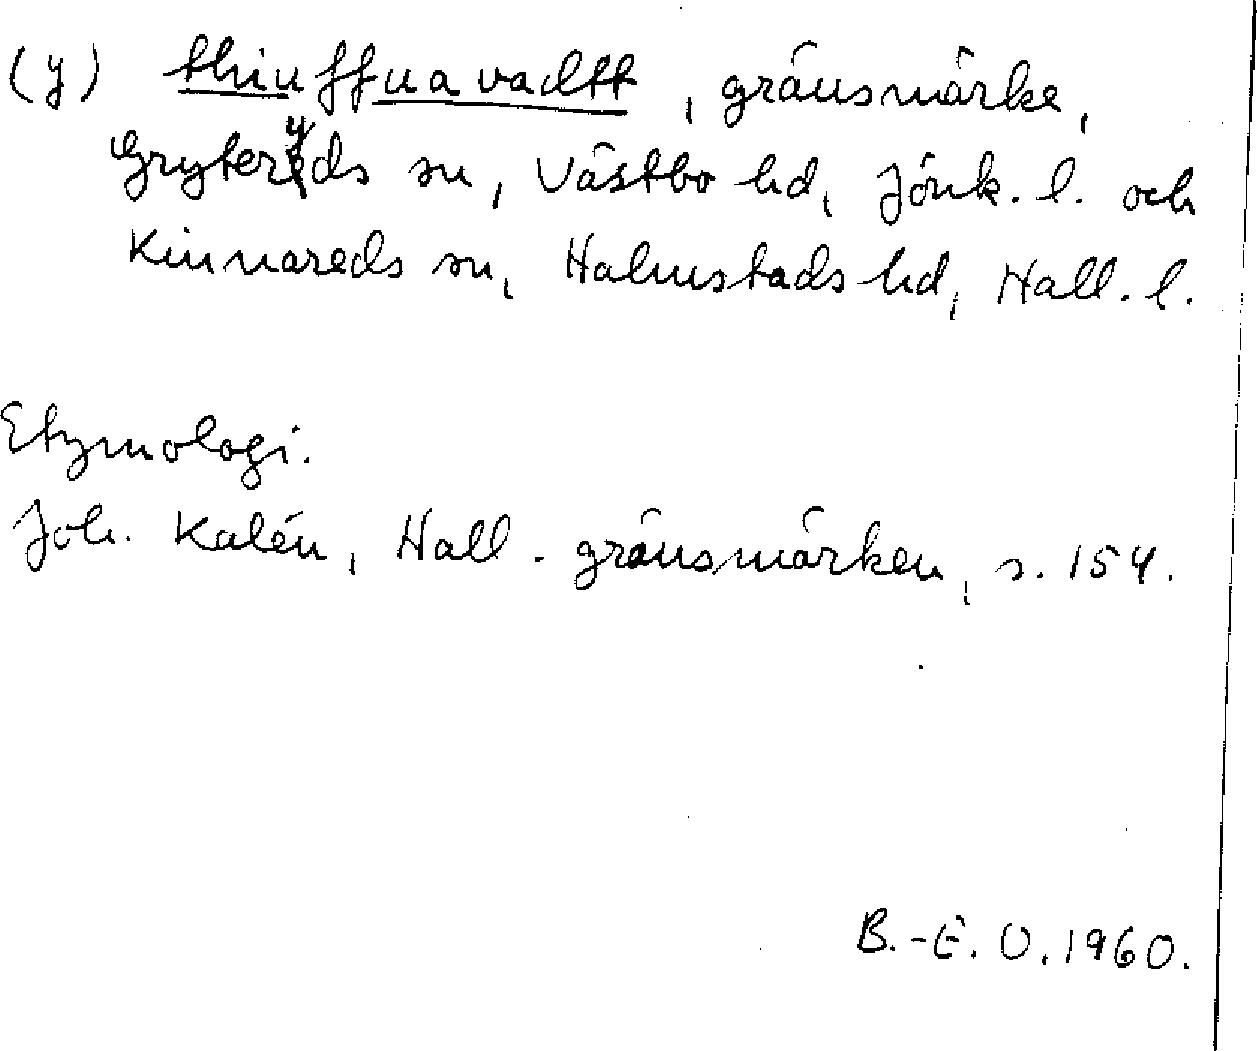 (y) thiuffua vadtt, gränsmärke,
Gryteryds sn, Västbo hd, Jönk. l. och
Kinnareds sn, Halmstads hd, Hall. l.
Etymologi.
Joh. Kalén, Hall. gränsmärken, s. 154.
B.-E. O. 1960.